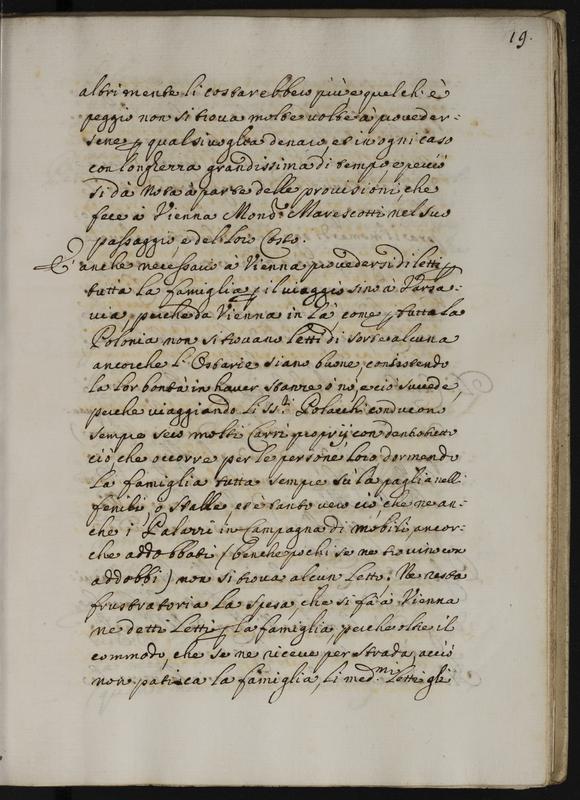 19.
altrimente li costarebbero più e quel ch'è
peggio non si trova molte volte à proveder-
sene p qualsivoglia denaro, et in ogni caso
con longhezza grandissima di tempo, e perciò
si dà nota à parte delle provisioni, che
fece à Vienna Monsr. Marescotti nel suo
passaggio, e del loro Costo.
E' anche necessario à Vienna provedersi di letti p
tutta la famiglia p il viaggio sino à Varsa-
via, perche da Vienna in là come p tutta la
Polonia non si trovano letti di sorte alcuna
ancorche l'Ostarie siano buone, consistendo
la lor bontà in haver stanze ò nò, e ciò succede,
perche viaggiando li SSri Polacchi conducono
sempre seco molti Carri proprij con dentro tutto
ciò, che occorre per le persone loro dormendo
la famiglia tutta sempre sù la paglia nelli
fenili, ò stalle, et è tanto vero ciò che ne an-
che i Palazzi in Campagna di mobili ancor-
che addobbati (benche pochi se ne trovino con
addobbi) non si trova alcun letto. Ne resta
frustratoria la spesa, che si fà à Vienna
ne detti Letti p la famiglia, perche oltre il
commodo, che se ne riceve per strada, acciò
non patisca la famiglia, li medmi letti gli